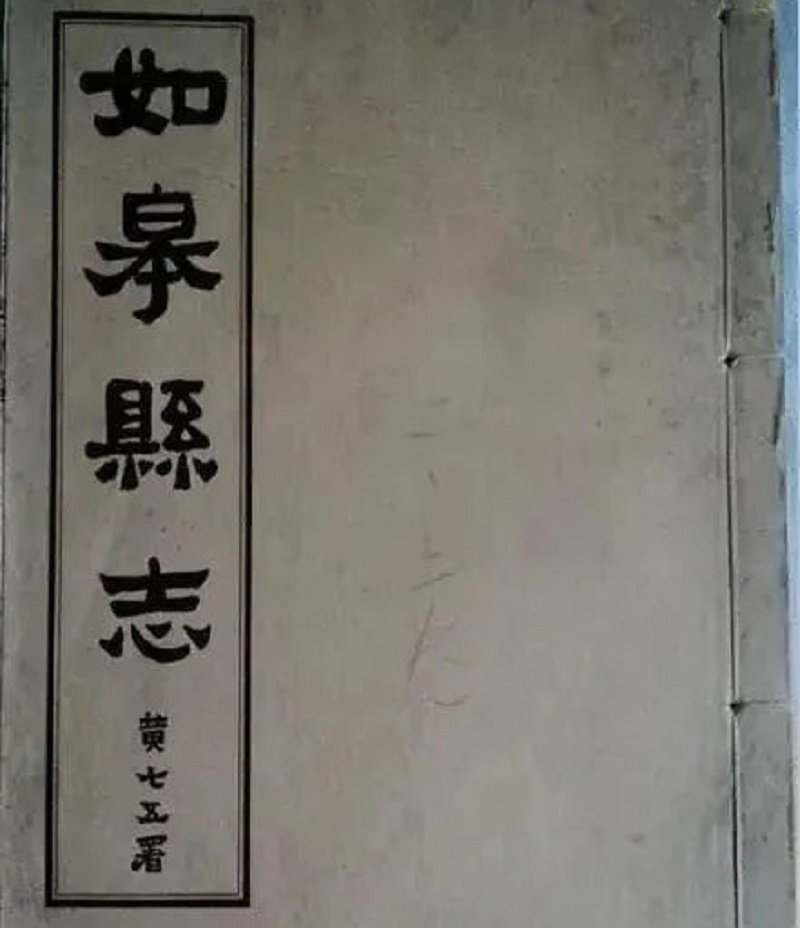 如皋縣志
黄七五署